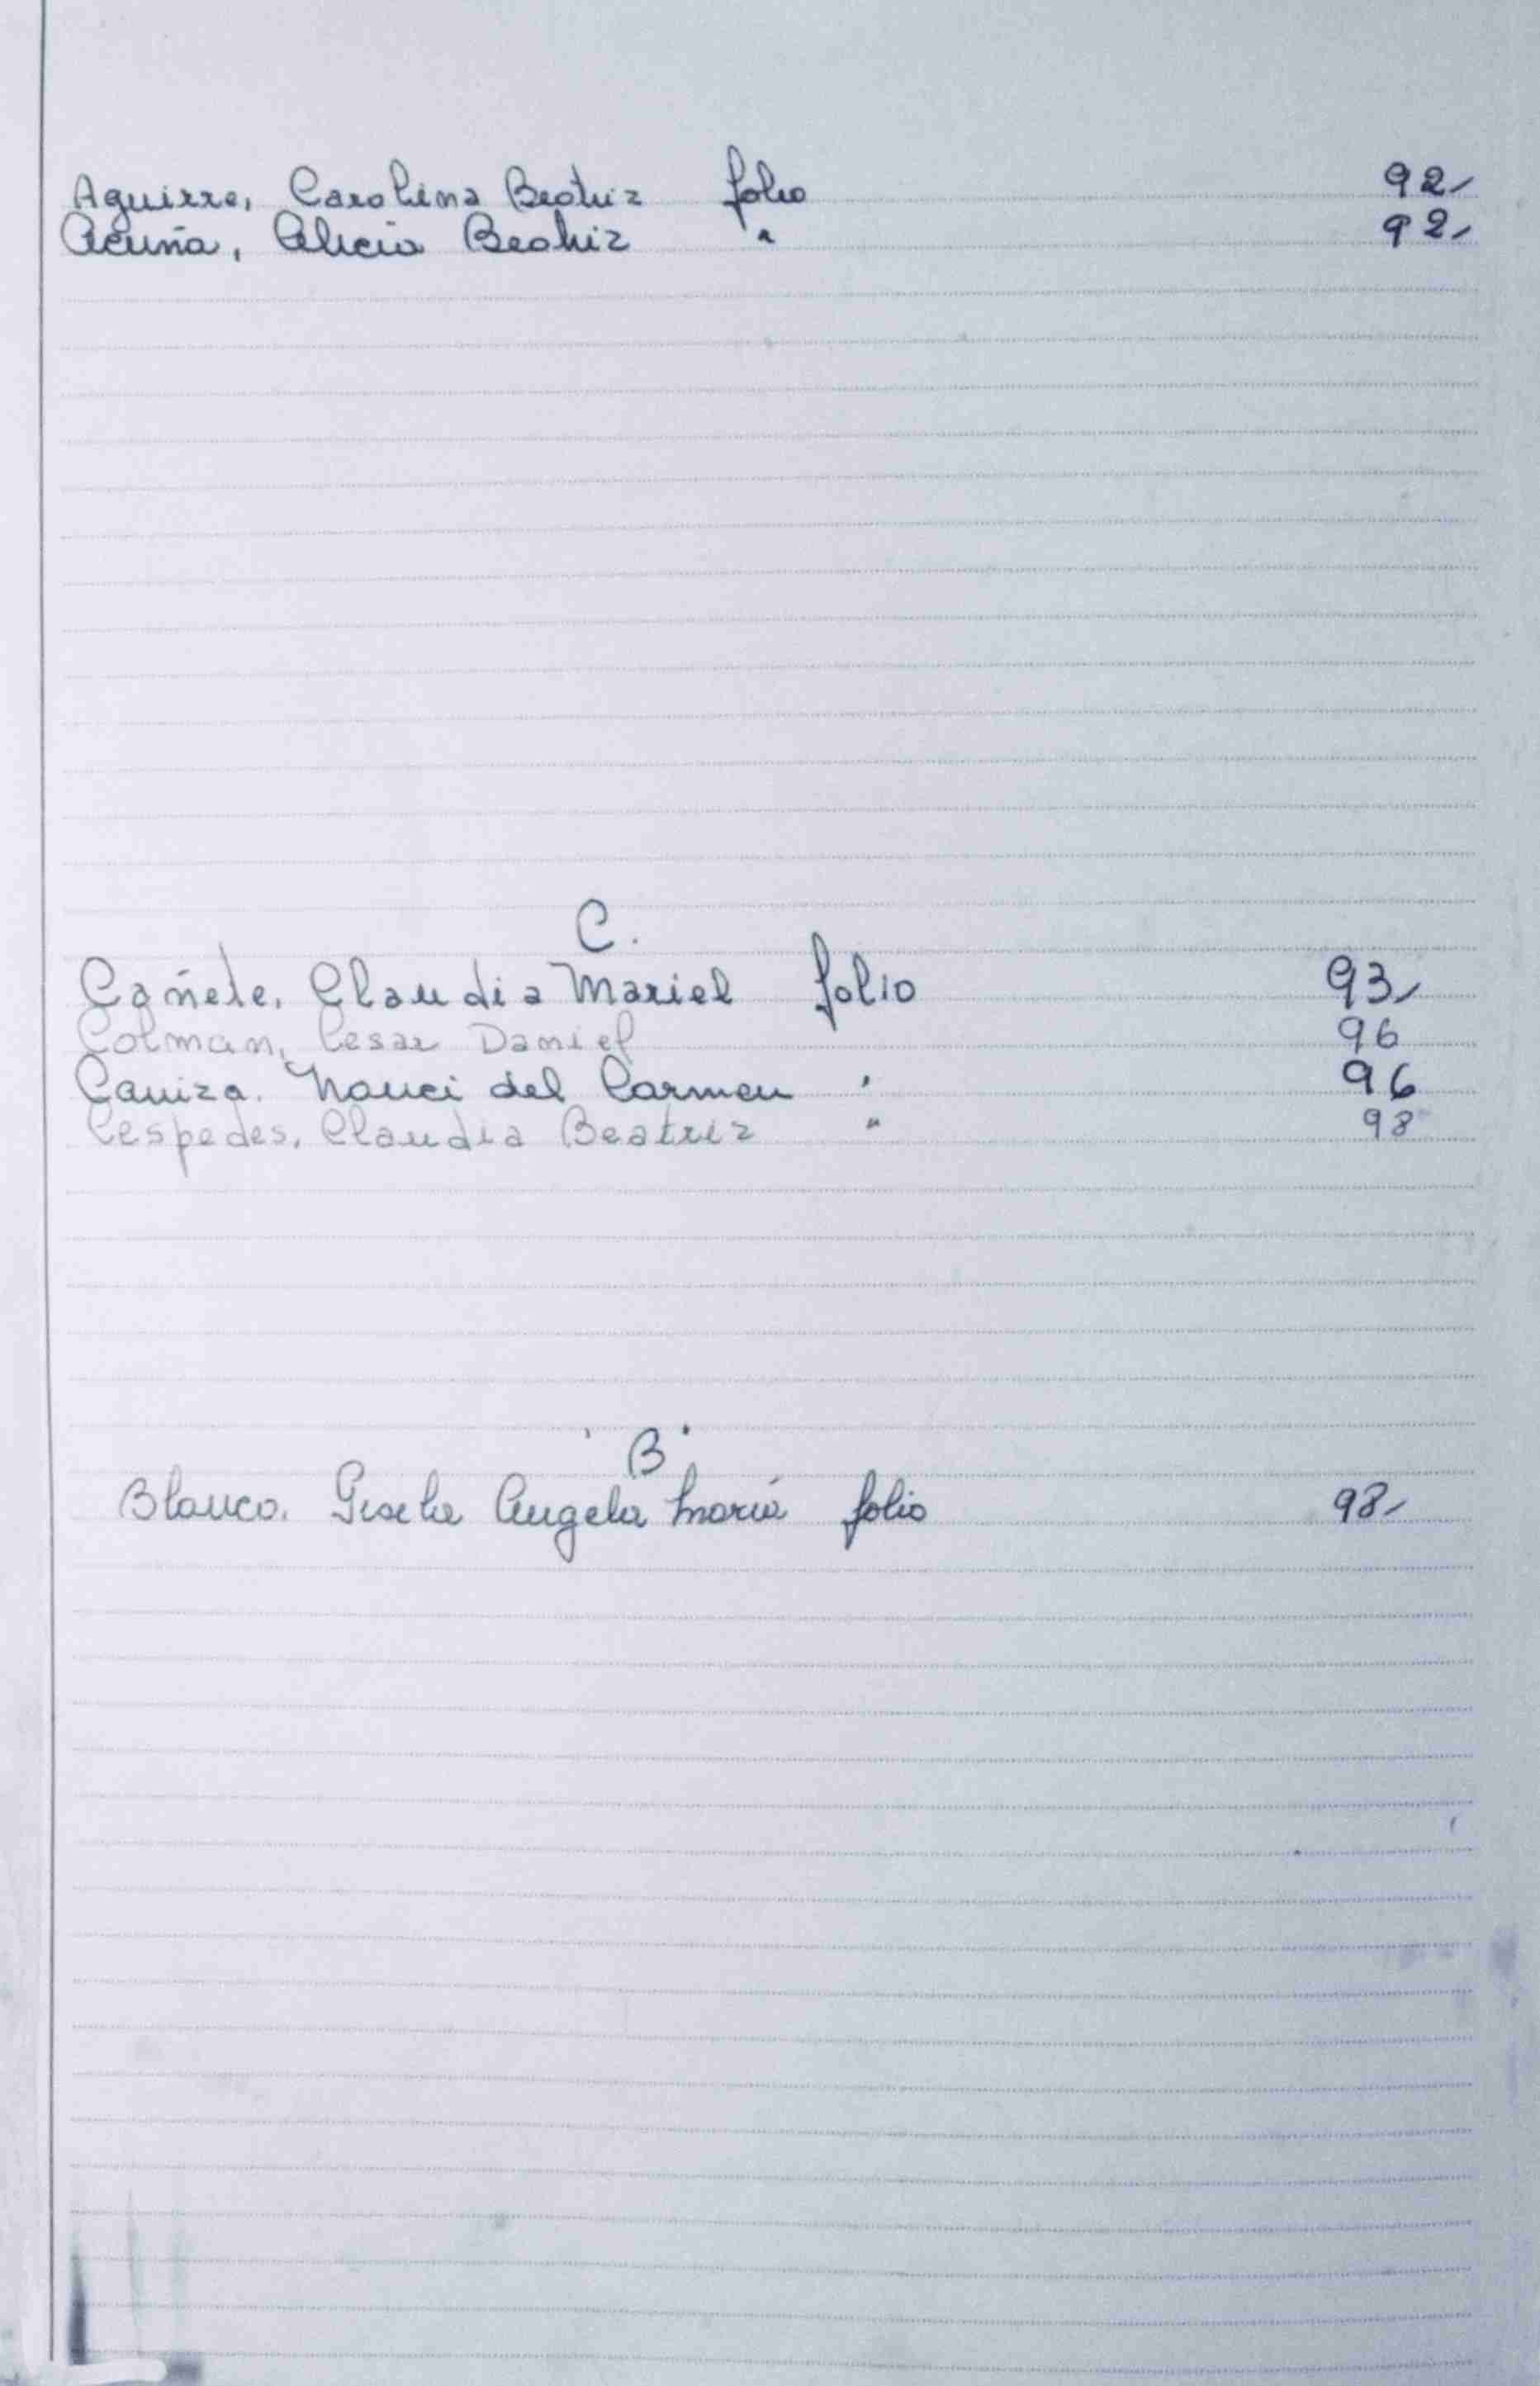 Aguirre, Carolina Beatriz folio 92-
Acuña, Alicia Beatriz " 92-
C.
Cañete, Claudia Mariel folio 93-
Colman, Cesar Daniel 96
Caniza. Nanci del Carmen " 96
Cespedes, Claudia Beatriz " 98
B
Blanco. Gisela Angela María folio 98-